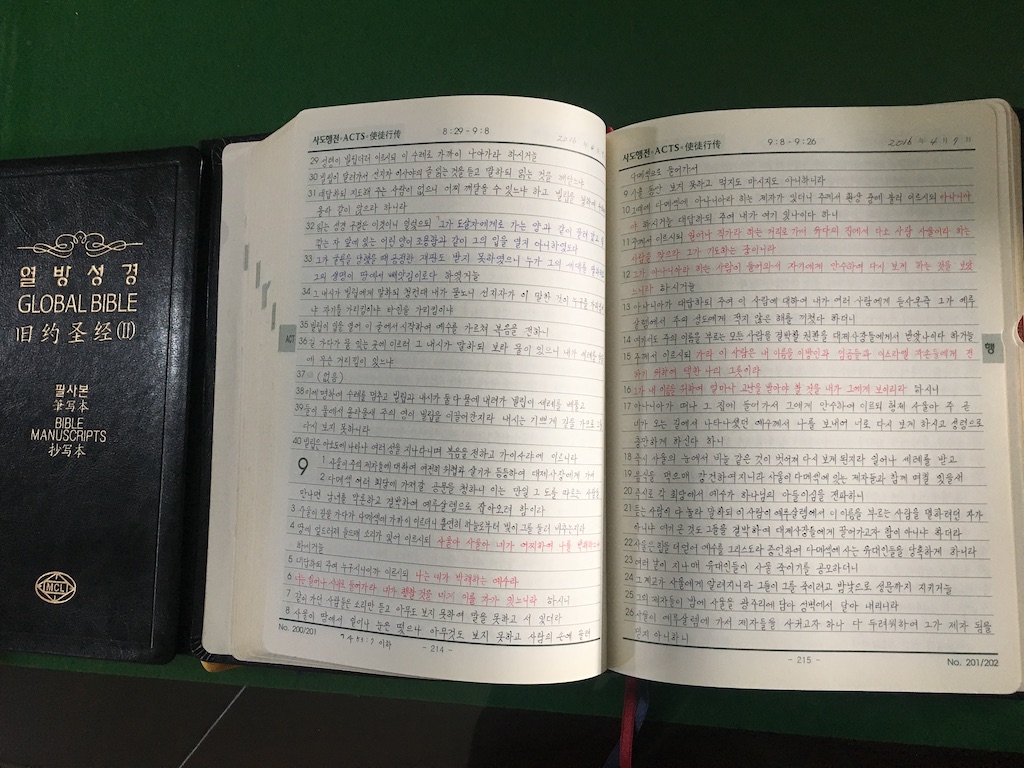 열방성경
GLOBAL BIBLE
旧约圣经(II)
필사본
筆写本
BIBLE
MANUSCRIPTS
抄写本
IMCLI
사도행전·ACTS·使徒行传 8:29-9:8 2016
29 성령이 빌립더러 이르시되 이 수레로 가까이 나아가라 하시거늘
30 빌립이 달려가서 선지자 이사야의 글 읽는 것을 듣고 말하되 읽는 것을 깨닫느냐
31 대답하되 지도해 주는 사람이 없으니 어찌 깨달을 수 있느냐 하고 빌립을 청하여 수레에
올라 같이 앉으라 하니라
32 읽는 성경 구절은 이것이니 일렀으되 그가 도살자에게로 가는 양과 같이 끌려갔고
털 깎는 자 앞에 있는 어린 양이 조용함과 같이 그의 입을 열지 아니하였도다
33 그가 굴욕을 당했을 때 공정한 재판도 받지 못하였으니 누가 그의 세대를
그의 생명이 땅에서 빼앗김이로다 하였거늘
34 그 내시가 빌립에게 말하되 청컨대 내가 묻노니 선지자가 이 말한 것이 누구를
냐 자기를 가리킴이냐 타인을 가리킴이냐
35 빌립이 입을 열어 이 글에서 시작하여 예수를 가르쳐 복음을 전하니
36 길 가다가 물 있는 곳에 이르러 그 내시가 말하되 보라 물이 있으니 내가 세례를
에 무슨 거리낌이 있느냐
37 (없음)
38 이에 명하여 수레를 멈추고 빌립과 내시가 둘 다 물에 내려가 빌립이 세례를 베풀고
39 둘이 물에서 올라올새 주의 영이 빌립을 이끌어간지라 내시는 기쁘게 길을 가므로
다시 보지 못하니라
40 빌립은 아소도에 나타나 여러 성을 지나다니며 복음을 전하고 가이사랴에 이르니라
9 1 사울이 주의 제자들에 대하여 여전히 위협과 살기가 등등하여 대제사장에게 가서
2 다메섹 여러 회당에 가져갈 공문을 청하니 이는 만일 그 도를 따르는 사람을
만나면 남녀를 막론하고 결박하여 예루살렘으로 잡아오려 함이라
3 사울이 길을 가다가 다메섹에 가까이 이르더니 홀연히 하늘로부터 빛이 그를 둘러 비추는지라
4 땅에 엎드러져 들으매 소리가 있어 이르시되 사울아 사울아 네가 어찌하여 나를 박해하느냐
하시거늘
5 대답하되 주여 누구시니이까 이르시되 나는 네가 박해하는 예수라
6 너는 일어나 시내로 들어가라 네가 행할 것을 네게 이를 자가 있느니라 하시니
7 같이 가던 사람들은 소리만 듣고 아무도 보지 못하여 말을 못하고 서 있더라
8 사울이 땅에서 일어나 눈은 떴으나 아무것도 보지 못하고 사람의 손에 끌려
No. 200/201
- 214 -
ACT
사도행전·ACTS·使徒行传 9:8-9:26 2016 年 4 月 9 日
다메섹으로 들어가서
9 사흘 동안 보지 못하고 먹지도 마시지도 아니하니라
10 그때에 다메섹에 아나니아라 하는 제자가 있더니 주께서 환상 중에 불러 이르시되 아나니아
야 하시거늘 대답하되 주여 내가 여기 있나이다 하니
11 주께서 이르시되 일어나 직가라 하는 거리로 가서 유다의 집에서 다소 사람 사울이라 하는
사람을 찾으라 그가 기도하는 중이니라
12 그가 아나니아라 하는 사람이 들어와서 자기에게 안수하여 다시 보게 하는 것을 보았
느니라 하시거늘
13 아나니아가 대답하되 주여 이 사람에 대하여 내가 여러 사람에게 듣사온즉 그가 예루
살렘에서 주의 성도에게 적지 않은 해를 끼쳤다 하더니
14 여기서도 주의 이름을 부르는 모든 사람을 결박할 권한을 대제사장들에게서 받았나이다 하거늘
15 주께서 이르시되 가라 이 사람은 내 이름을 이방인과 임금들과 이스라엘 자손들에게 전
하기 위하여 택한 나의 그릇이라
16 그가 내 이름을 위하여 얼마나 고난을 받아야 할 것을 내가 그에게 보이리라 하시니
17 아나니아가 떠나 그 집에 들어가서 그에게 안수하여 이르되 형제 사울아 주 곧
네가 오는 길에서 나타나셨던 예수께서 나를 보내어 너로 다시 보게 하시고 성령으로
충만하게 하신다 하니
18 즉시 사울의 눈에서 비늘 같은 것이 벗어져 다시 보게 된지라 일어나 세례를 받고
19 음식을 먹으매 강건하여지니라 사울이 다메섹에 있는 제자들과 함께 며칠 있을새
20 즉시로 각 회당에서 예수가 하나님의 아들이심을 전파하니
21 듣는 사람이 다 놀라 말하되 이 사람이 예루살렘에서 이 이름을 부르는 사람을 멸하려던 자가
아니냐 여기 온 것도 그들을 결박하여 대제사장들에게 끌어가고자 함이 아니냐 하더라
22 사울은 힘을 더 얻어 예수를 그리스도라 증언하여 다메섹에 사는 유대인들을 당혹하게 하니라
23 여러 날이 지나매 유대인들이 사울 죽이기를 공모하더니
24 그 계교가 사울에게 알려지니라 그들이 그를 죽이려고 밤낮으로 성문까지 지키거늘
25 그의 제자들이 밤에 사울을 광주리에 담아 성벽에서 달아 내리니라
26 사울이 예루살렘에 가서 제자들을 사귀고자 하나 다 두려워하여 그가 제자 됨을
믿지 아니하니
행
- 215 -
No. 201/202